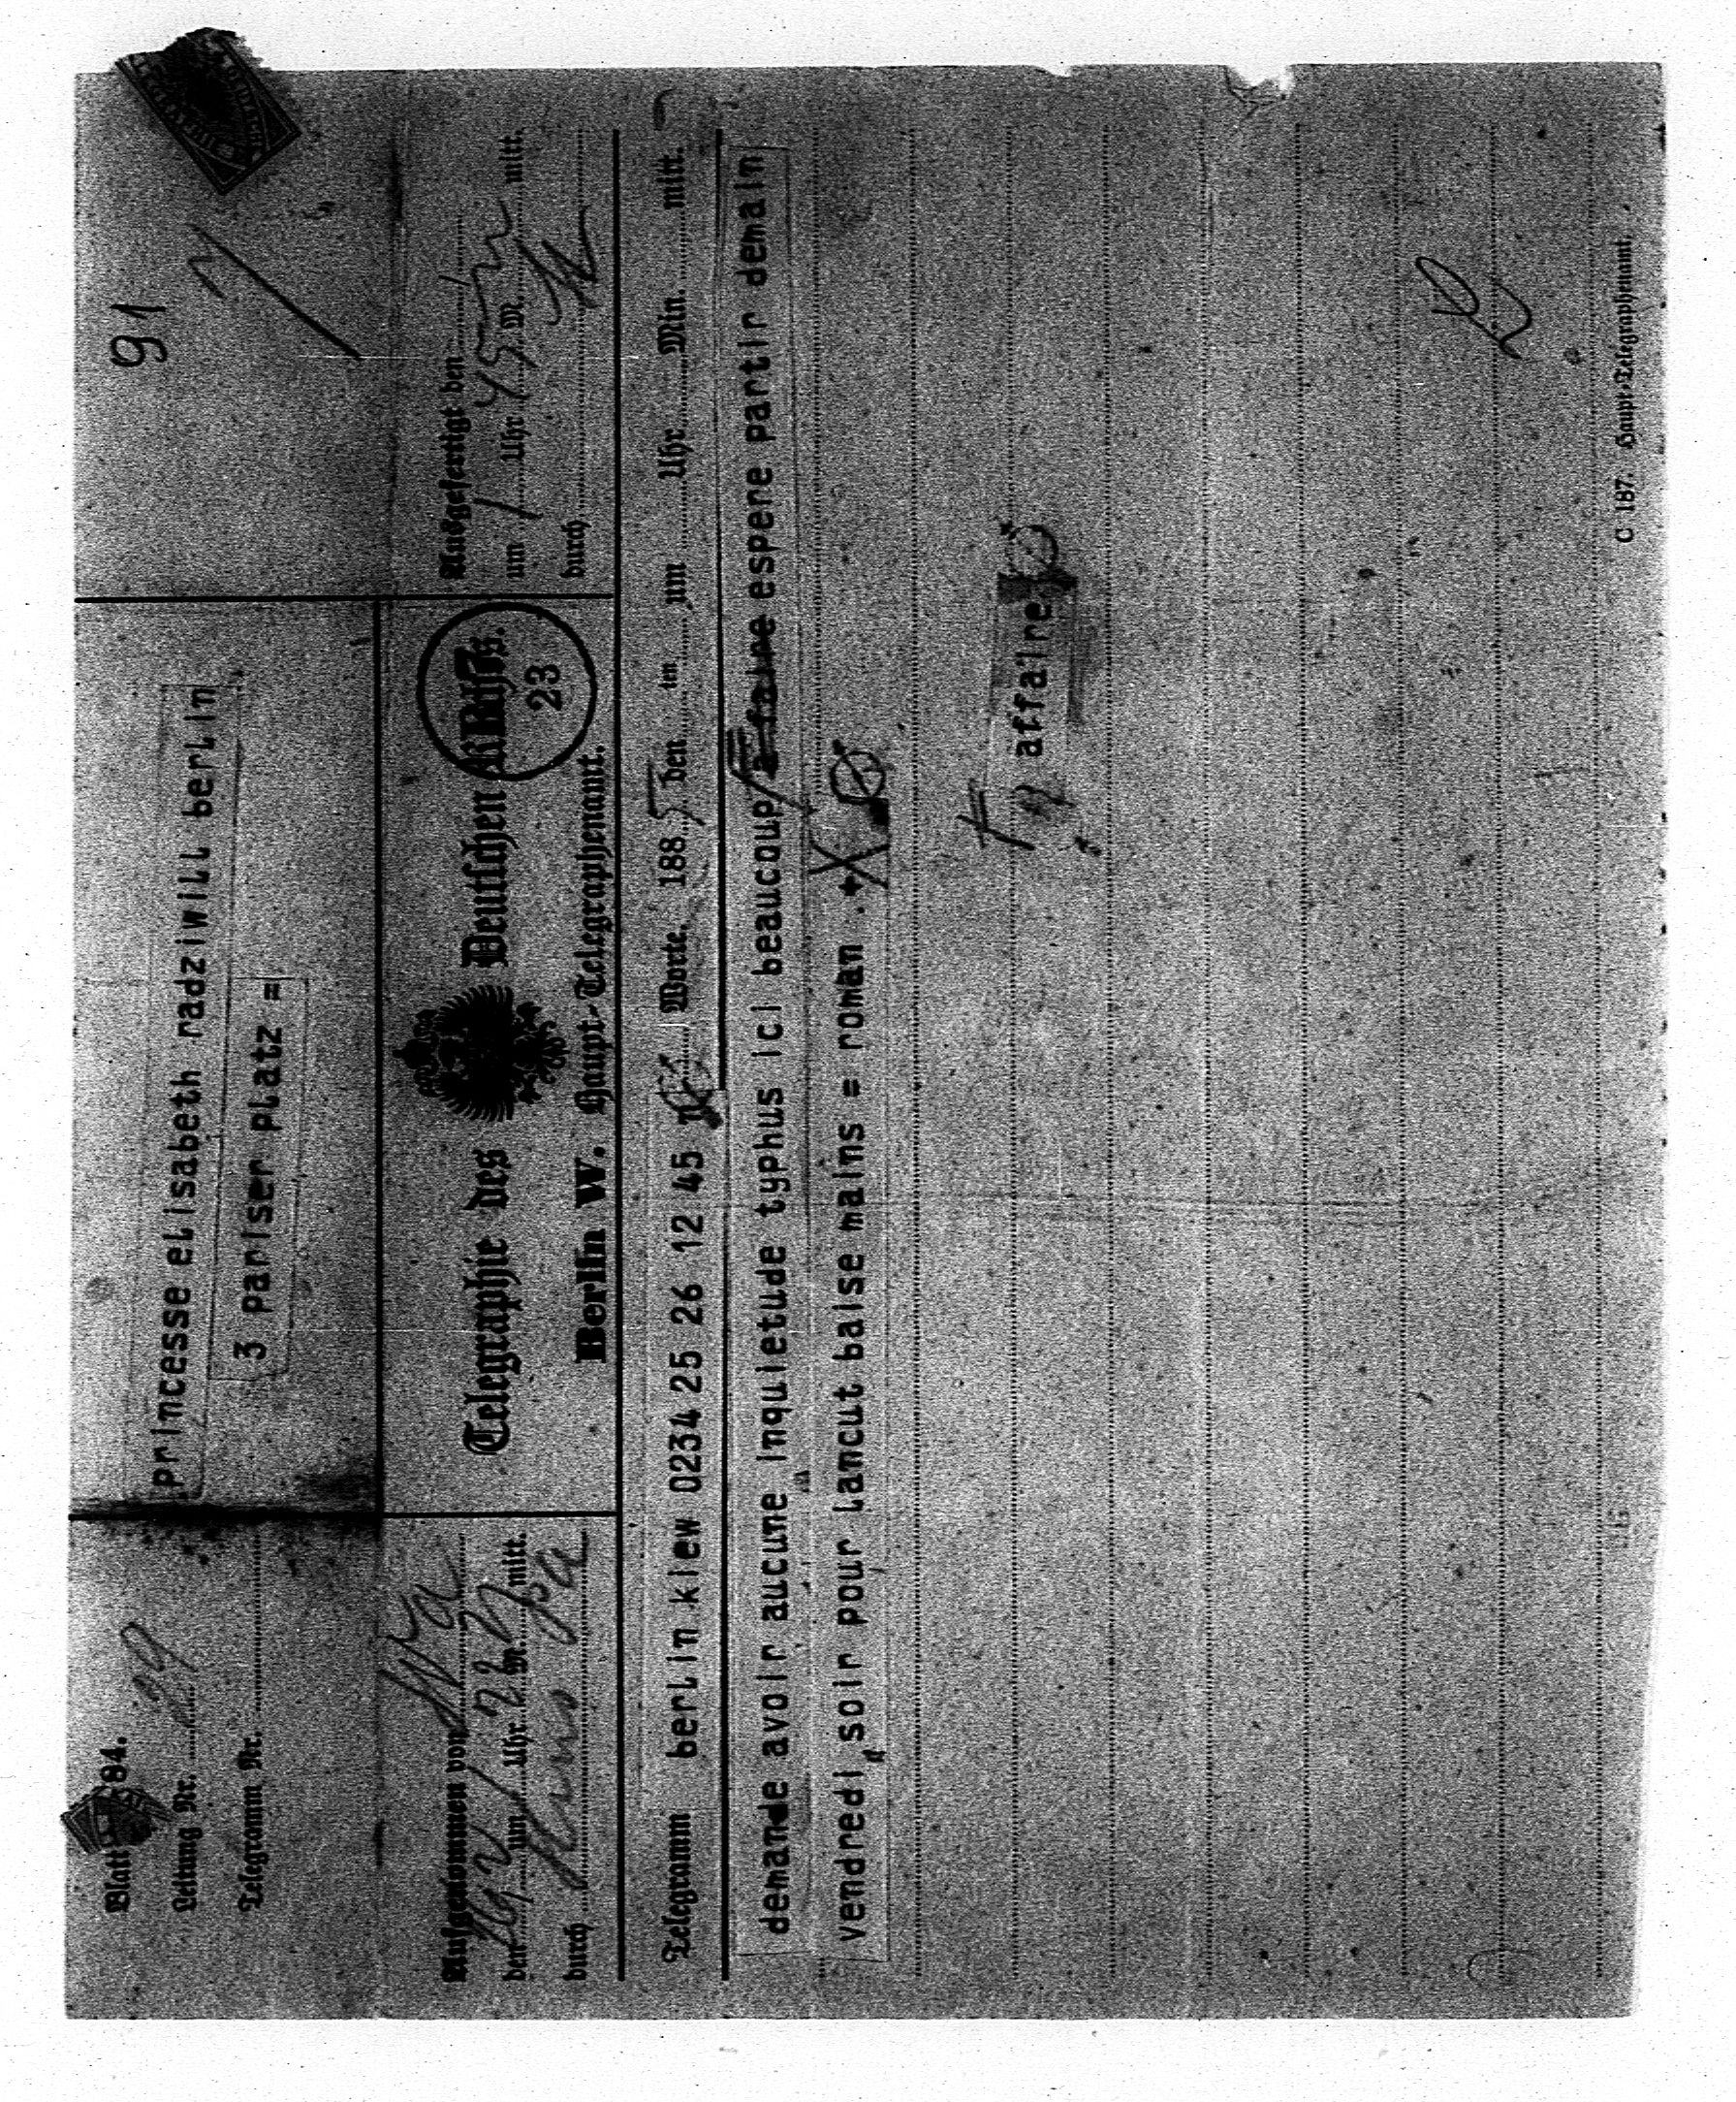 91
Blatt 84.
Leitung Nr.
Telegramm Nr.
princesse elisabeth radziwill berlin
3 pariser platz =
Aufgenommen von
den um Uhr M. mitt.
durch
Telegraphie des Deutschen Reichs.
Berlin W. Haupt-Telegraphenamt.
23
Ausgefertigt den
um 1 Uhr 45 M. mitt.
durch
Telegramm berlin kiew 0234 25 26 12 45 Worte. 1885 den ten um Uhr Min. mitt.
demande avoir aucune inquietude typhus ici beaucoup espere partir demain
vendredi soir pour lancut baise mains = roman . +
affaire
C 187. Haupt-Telegraphenamt.